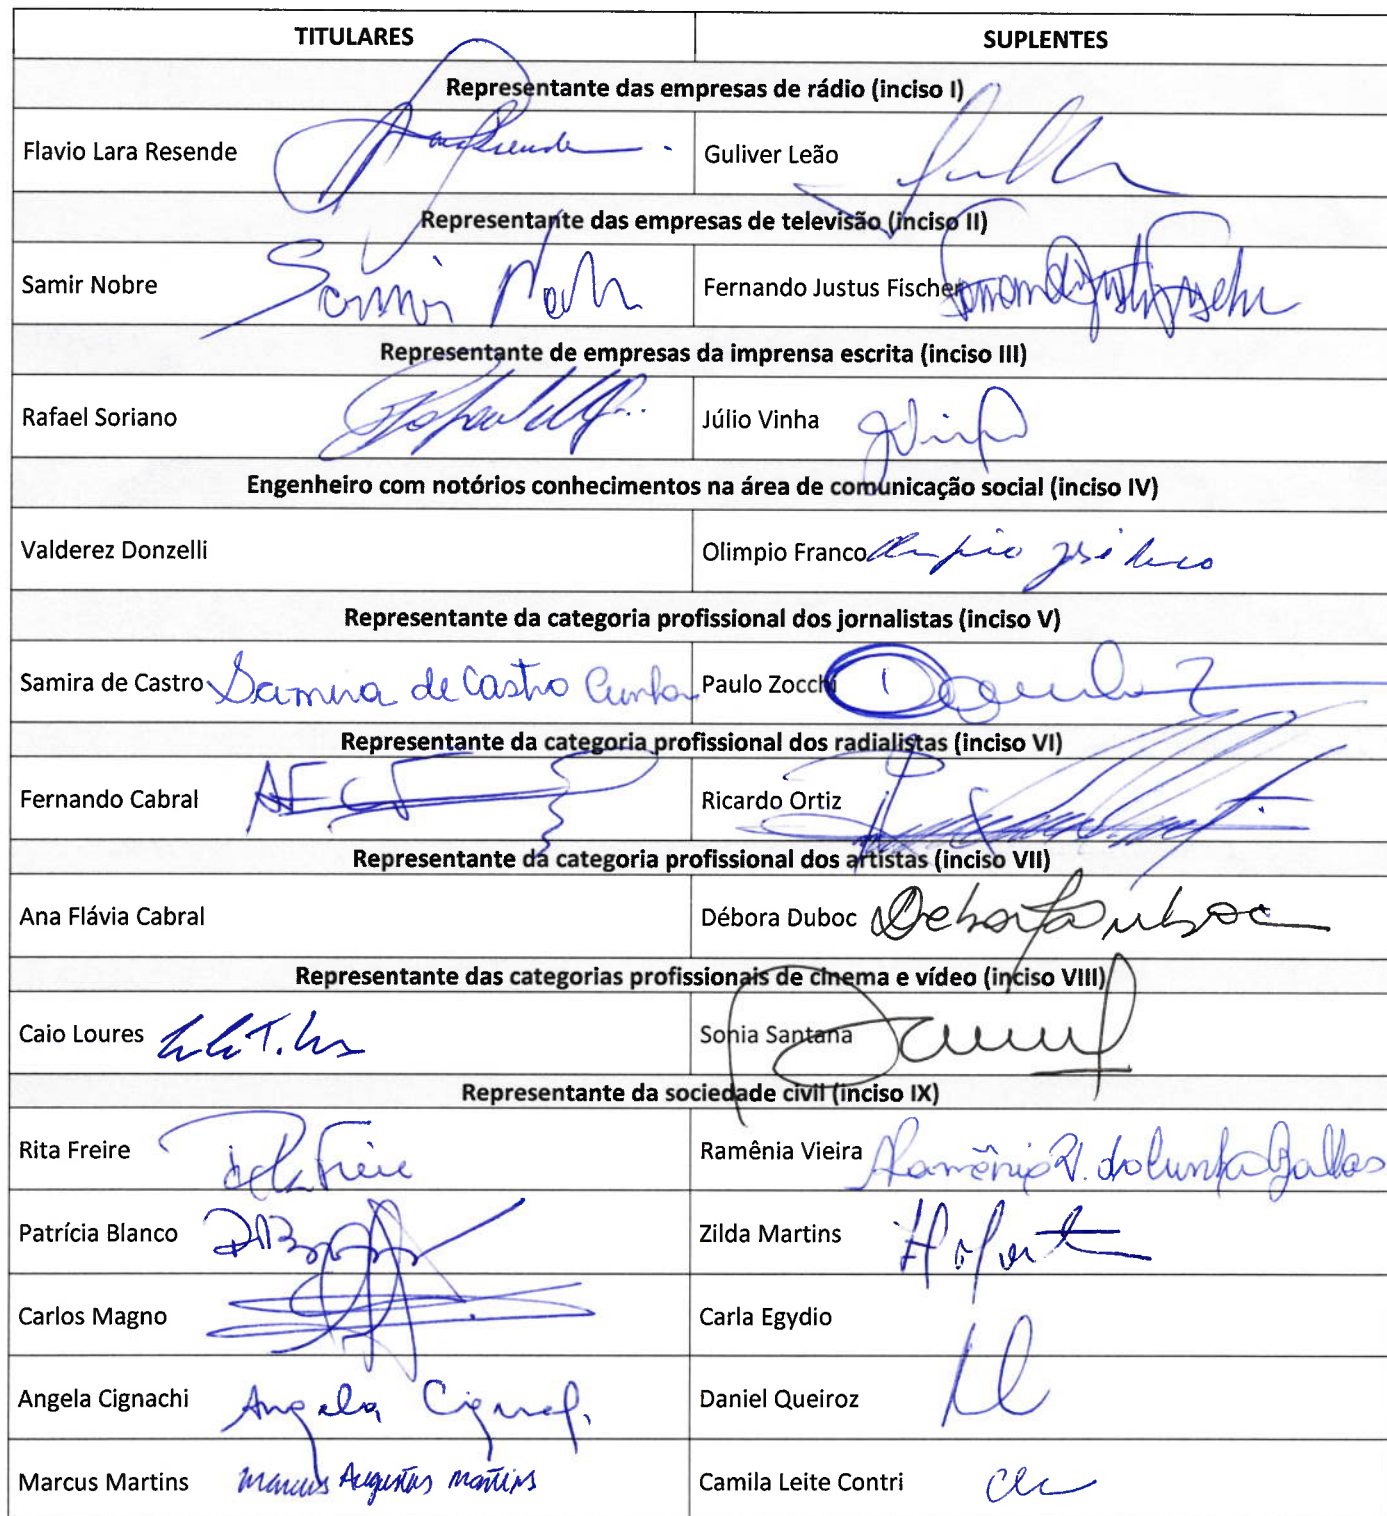 TITULARES SUPLENTES
Representante das empresas de rádio (inciso I)
Flavio Lara Resende Guliver Leão
Representante das empresas de televisão (inciso II)
Samir Nobre Samir Fernando Justus Fischer
Representante de empresas da imprensa escrita (inciso III)
Rafael Soriano Júlio Vinha
Engenheiro com notórios conhecimentos na área de comunicação social (inciso IV)
Valderez Donzelli Olimpio Franco
Representante da categoria profissional dos jornalistas (inciso V)
Samira de Castro Samira de Castro Cunha Paulo Zocchi
Representante da categoria profissional dos radialistas (inciso VI)
Fernando Cabral Ricardo Ortiz
Representante da categoria profissional dos artistas (inciso VII)
Ana Flávia Cabral Débora Duboc Debora Duboc
Representante das categorias profissionais de cinema e vídeo (inciso VIII)
Caio Loures Sonia Santana
Representante da sociedade civil (inciso IX)
Rita Freire Rita Freire Ramênia Vieira Ramênia V. da Cunha
Patrícia Blanco Zilda Martins
Carlos Magno Carla Egydio
Angela Cignachi Angela Daniel Queiroz
Marcus Martins Marcus Augustus Martins Camila Leite Contri